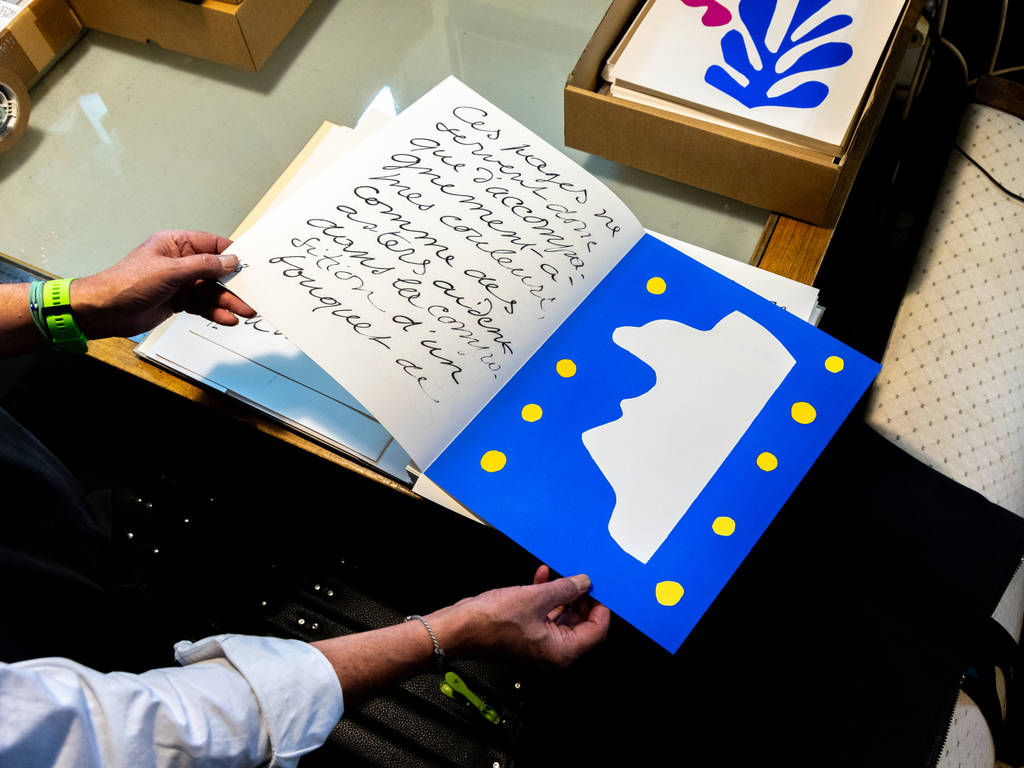 Ces pages ne
servent donc
que d'accompa-
gnement à
mes couleurs,
comme des
asters aident
dans la compo-
sition d'un
bouquet de